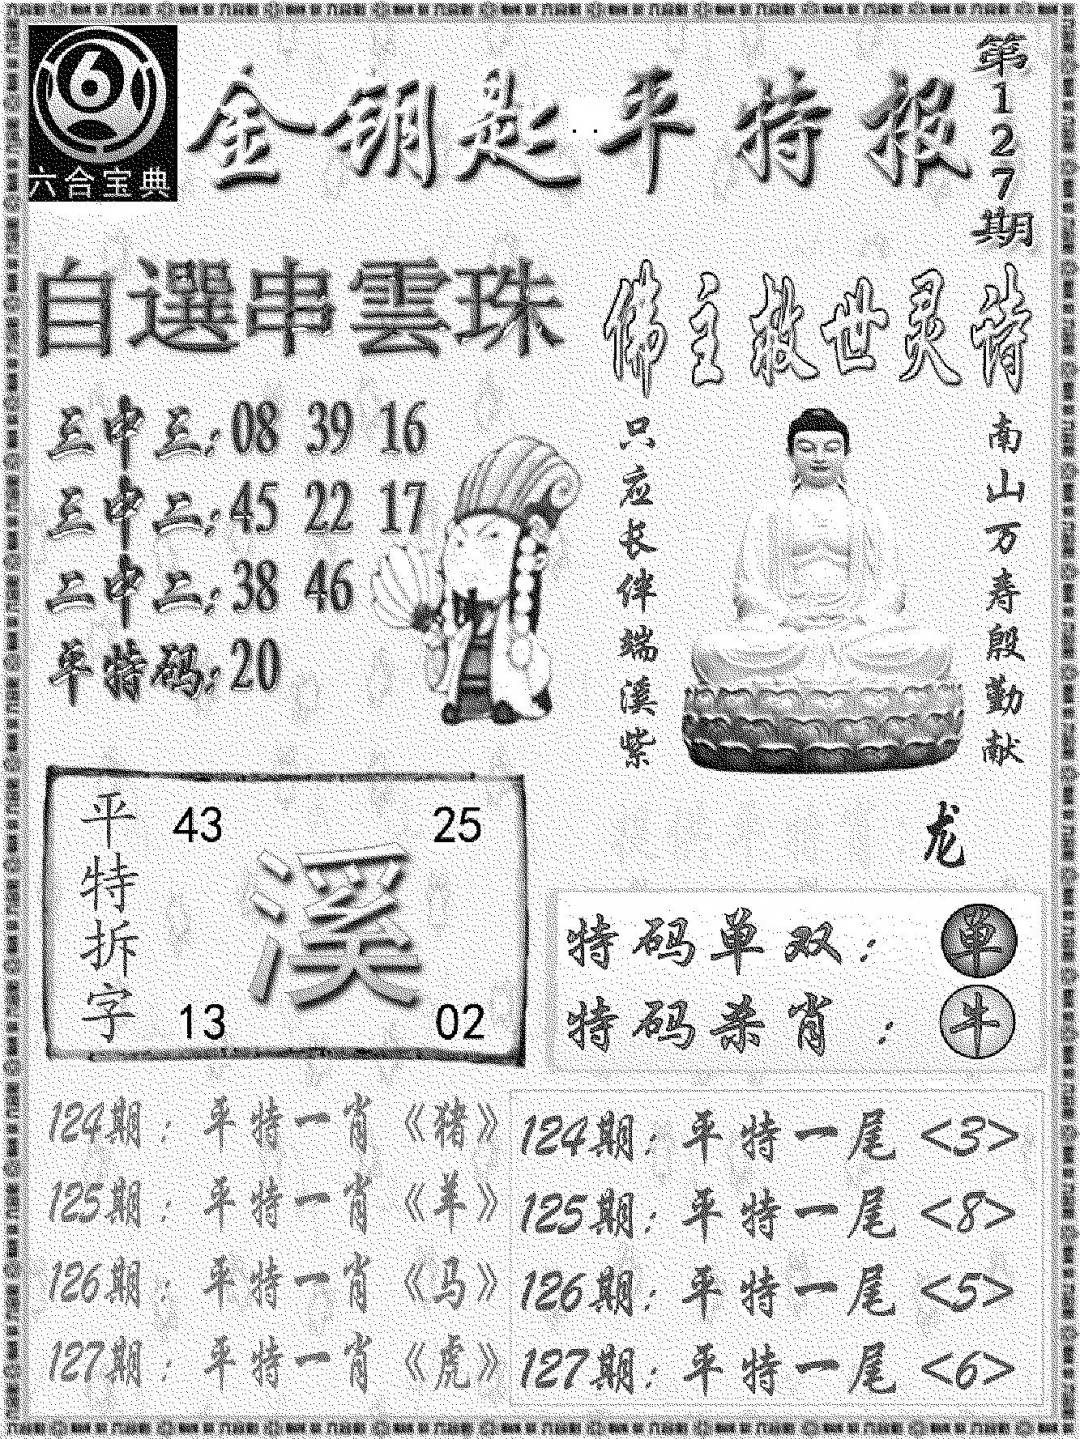 6
六合宝典
金钥匙··平特报
第127期
自選串雲珠
三中三:08 39 16
三中二:45 22 17
二中二:38 46
单特码:20
佛主救世灵诗
南山万寿殷勤献
只应长伴端溪紫
龙
平特拆字
43 25
溪
13 02
特码单双:单
特码杀肖:牛
124期:平特一肖《猪》
125期:平特一肖《羊》
126期:平特一肖《马》
127期:平特一肖《虎》
124期:平特一尾<3>
125期:平特一尾<8>
126期:平特一尾<5>
127期:平特一尾<6>